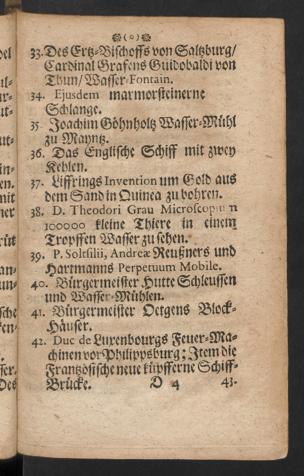 (o)
33. Des Ertz-Bischoffs von Saltzburg/
Cardinal Grafens Guidobaldi von
Thun/ Wasser-Fontain.
34. Ejusdem marmorsteinerne
Schlange.
35 Joachim Göhnholtz Wasser-Mühl
zu Mayntz.
36. Das Englische Schiff mit zwey
Kehlen.
37. Liffrings Invention um Gold aus
dem Sand in Guinea zu bohren.
38. D. Theodori Grau Microscopium
100000 kleine Thiere in einem
Tropffen Wasser zu sehen.
39. P. Solfilii, Andreæ Reußners und
Hartmanns Perpetuum Mobile.
40. Bürgermeister Hutte Schleussen
und Wasser-Mühlen.
41. Bürgermeister Oetgens Block-
Häuser.
42. Duc de Luxenbourgs Feuer-Ma-
chinen vor Philippsburg; Item die
Frantzösische neue küpfferne Schiff-
Brücke. D 4 43.